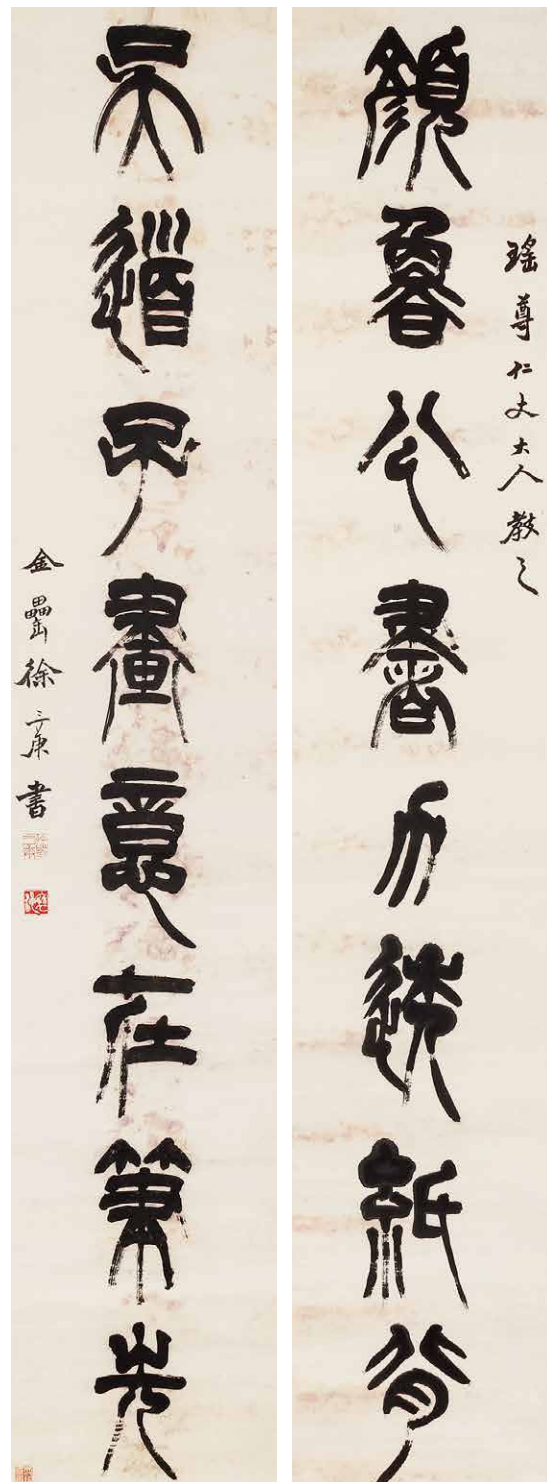 顏魯公書力透紙背
瑤尊仁丈大人教之
吴道子畫意在筆先
金罍徐三庚書